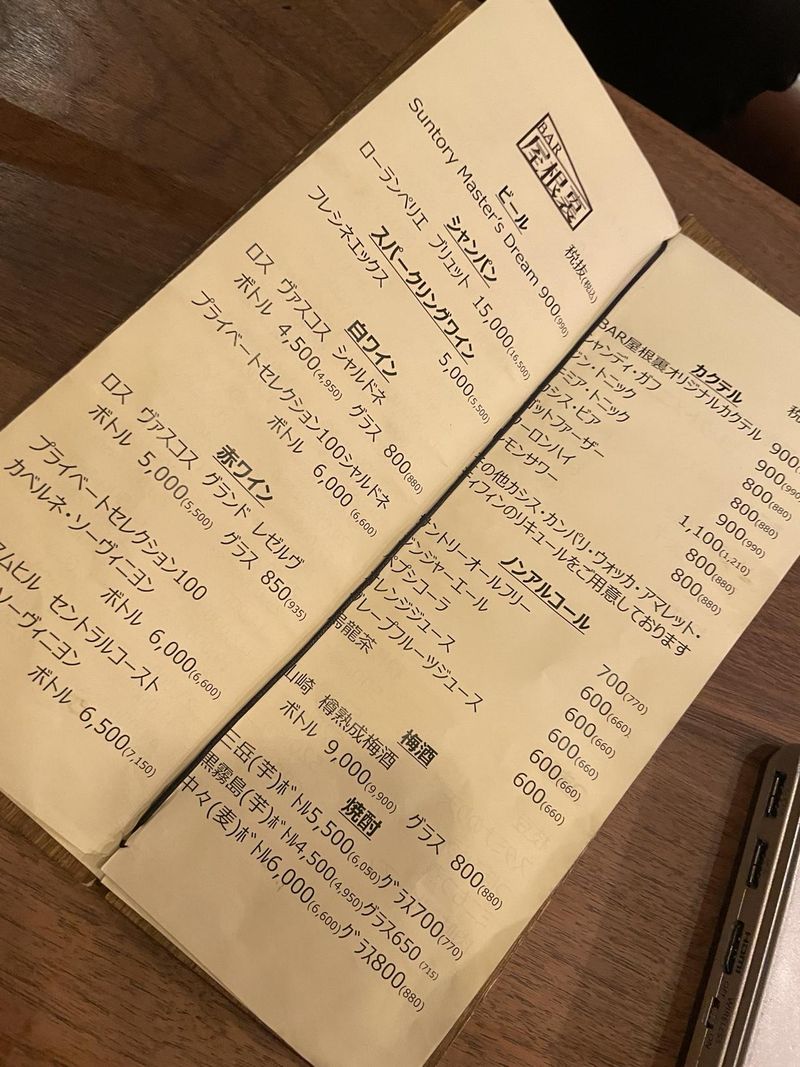 BAR
屋根裏
税抜(税込)
ビール
Suntory Master's Dream 900(990)
シャンパン
ローランペリエ ブリュット 15,000(16,500)
スパークリングワイン
フレシネエックス 5,000(5,500)
白ワイン
ロス ヴァスコス シャルドネ
ボトル 4,500(4,950) グラス 800(880)
プライベートセレクション100シャルドネ
ボトル 6,000(6,600)
赤ワイン
ロス ヴァスコス グランド レゼルヴ
ボトル 5,000(5,500) グラス 850(935)
プライベートセレクション100
カベルネ・ソーヴィニヨン
ボトル 6,000(6,600)
ムヒル セントラルコースト
ソーヴィニヨン
ボトル 6,500(7,150)
カクテル
BAR屋根裏オリジナルカクテル 900
シャンディ・ガフ 900(990)
ジン・トニック 800(880)
ニア・トニック 800(880)
シス・ビア 900(990)
ッドファーザー 1,100(1,210)
ーロンハイ 800(880)
モンサワー 800(880)
の他カシス・カンパリ・ウオッカ・アマレット・
ィフィンのリキュールをご用意しております
ノンアルコール
ントリーオールフリー 700(770)
ジンジャーエール 600(660)
ペプシコーラ 600(660)
レンジジュース 600(660)
レープフルーツジュース 600(660)
烏龍茶 600(660)
梅酒
山崎 樽熟成梅酒
ボトル 9,000(9,900) グラス 800(880)
焼酎
三岳(芋)ボトル5,500(6,050)グラス700(770)
黒霧島(芋)ボトル4,500(4,950)グラス650(715)
中々(麦)ボトル6,000(6,600)グラス800(880)